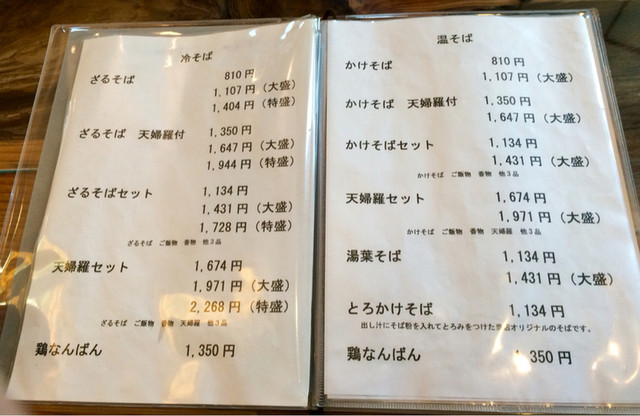 冷そば
ざるそば 810円
1,107円（大盛）
1,404円（特盛）
ざるそば 天婦羅付 1,350円
1,647円（大盛）
1,944円（特盛）
ざるそばセット 1,134円
1,431円（大盛）
1,728円（特盛）
ざるそば ご飯物 香物 他3品
天婦羅セット 1,674円
1,971円（大盛）
2,268円（特盛）
ざるそば ご飯物 香物 天婦羅 他3品
鶏なんばん 1,350円
温そば
かけそば 810円
1,107円（大盛）
かけそば 天婦羅付 1,350円
1,647円（大盛）
かけそばセット 1,134円
1,431円（大盛）
かけそば ご飯物 香物 他3品
天婦羅セット 1,674円
1,971円（大盛）
かけそば ご飯物 香物 天婦羅 他3品
湯葉そば 1,134円
1,431円（大盛）
とろかけそば 1,134円
出し汁にそば粉を入れてとろみをつけた オリジナルのそばです。
鶏なんばん 1,350円